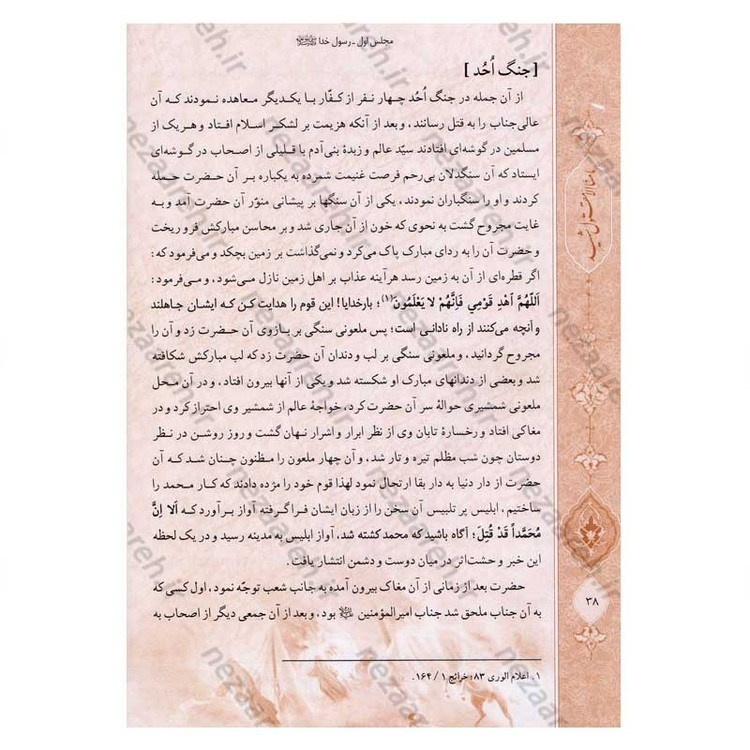 مجلس اول ـ رسول خدا ﷺ
[جنگ اُحُد]
از آن جمله در جنگ اُحُد چهار نفر از کفّار با یکدیگر معاهده نمودند که آن
عالی‌جناب را به قتل رسانند، و بعد از آنکه هزیمت بر لشکر اسلام افتاد و هر یک از
مسلمین در گوشه‌ای افتادند سیّد عالم و زبدهٔ بنی‌آدم با قلیلی از اصحاب در گوشه‌ای
ایستاد که آن سنگدلان بی‌رحم فرصت غنیمت شمرده به یکباره بر آن حضرت حمله
کردند و او را سنگباران نمودند، یکی از آن سنگها بر پیشانی منوّر آن حضرت آمد و به
غایت مجروح گشت به نحوی که خون از آن جاری شد و بر محاسن مبارکش فرو ریخت
و حضرت آن را به ردای مبارک پاک می‌کرد و نمی‌گذاشت بر زمین بچکد و می‌فرمود که:
اگر قطره‌ای از آن به زمین رسد هرآینه عذاب بر اهل زمین نازل می‌شود، و می‌فرمود:
اَللّهُمَّ اَهْدِ قَوْمِي فَاِنَّهُمْ لا یَعْلَمُونَ(۱)؛ بارخدایا! این قوم را هدایت کن که ایشان جاهلند
و آنچه می‌کنند از راه نادانی است؛ پس ملعونی سنگی بر بازوی آن حضرت زد و آن را
مجروح گردانید، و ملعونی سنگی بر لب و دندان آن حضرت زد که لب مبارکش شکافته
شد و بعضی از دندانهای مبارک او شکسته شد و یکی از آنها بیرون افتاد، و در آن محل
ملعونی شمشیری حوالهٔ سر آن حضرت کرد، خواجهٔ عالم از شمشیر وی احتراز کرد و در
مغاکی افتاد و رخسارهٔ تابان وی از نظر ابرار و اشرار نهان گشت و روز روشن در نظر
دوستان چون شب مظلم تیره و تار شد، و آن چهار ملعون را مظنون چنان شد که آن
حضرت از دار دنیا به دار بقا ارتحال نمود لهذا قوم خود را مژده دادند که کار محمد را
ساختیم، ابلیس پر تلبیس آن سخن را از زبان ایشان فرا گرفته آواز برآورد که اَلا اِنَّ
مُحَمَّداً قَدْ قُتِلَ؛ آگاه باشید که محمد کشته شد، آواز ابلیس به مدینه رسید و در یک لحظه
این خبر و حشت‌اثر در میان دوست و دشمن انتشار یافت.
حضرت بعد از زمانی از آن مغاک بیرون آمده به جانب شعب توجّه نمود، اول کسی که
به آن جناب ملحق شد جناب امیرالمؤمنین بود، و بعد از آن جمعی دیگر از اصحاب به
۱. اعلام الوری ۸۳؛ خرائج ۱ / ۱۶۴.
۳۸
nezaareh.ir